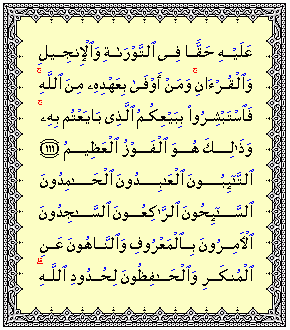 عَلَيْهِ حَقًّا فِى ٱلتَّوْرَىٰةِ وَٱلْإِنجِيلِ
وَٱلْقُرْءَانِ ۚ وَمَنْ أَوْفَىٰ بِعَهْدِهِۦ مِنَ ٱللَّهِ ۚ
فَٱسْتَبْشِرُوا۟ بِبَيْعِكُمُ ٱلَّذِى بَايَعْتُم بِهِۦ ۚ
وَذَٰلِكَ هُوَ ٱلْفَوْزُ ٱلْعَظِيمُ ﴿١١١﴾
ٱلتَّـٰٓئِبُونَ ٱلْعَـٰبِدُونَ ٱلْحَـٰمِدُونَ
ٱلسَّـٰٓئِحُونَ ٱلرَّٰكِعُونَ ٱلسَّـٰجِدُونَ
ٱلْـَٔامِرُونَ بِٱلْمَعْرُوفِ وَٱلنَّاهُونَ عَنِ
ٱلْمُنكَرِ وَٱلْحَـٰفِظُونَ لِحُدُودِ ٱللَّهِ ۗ